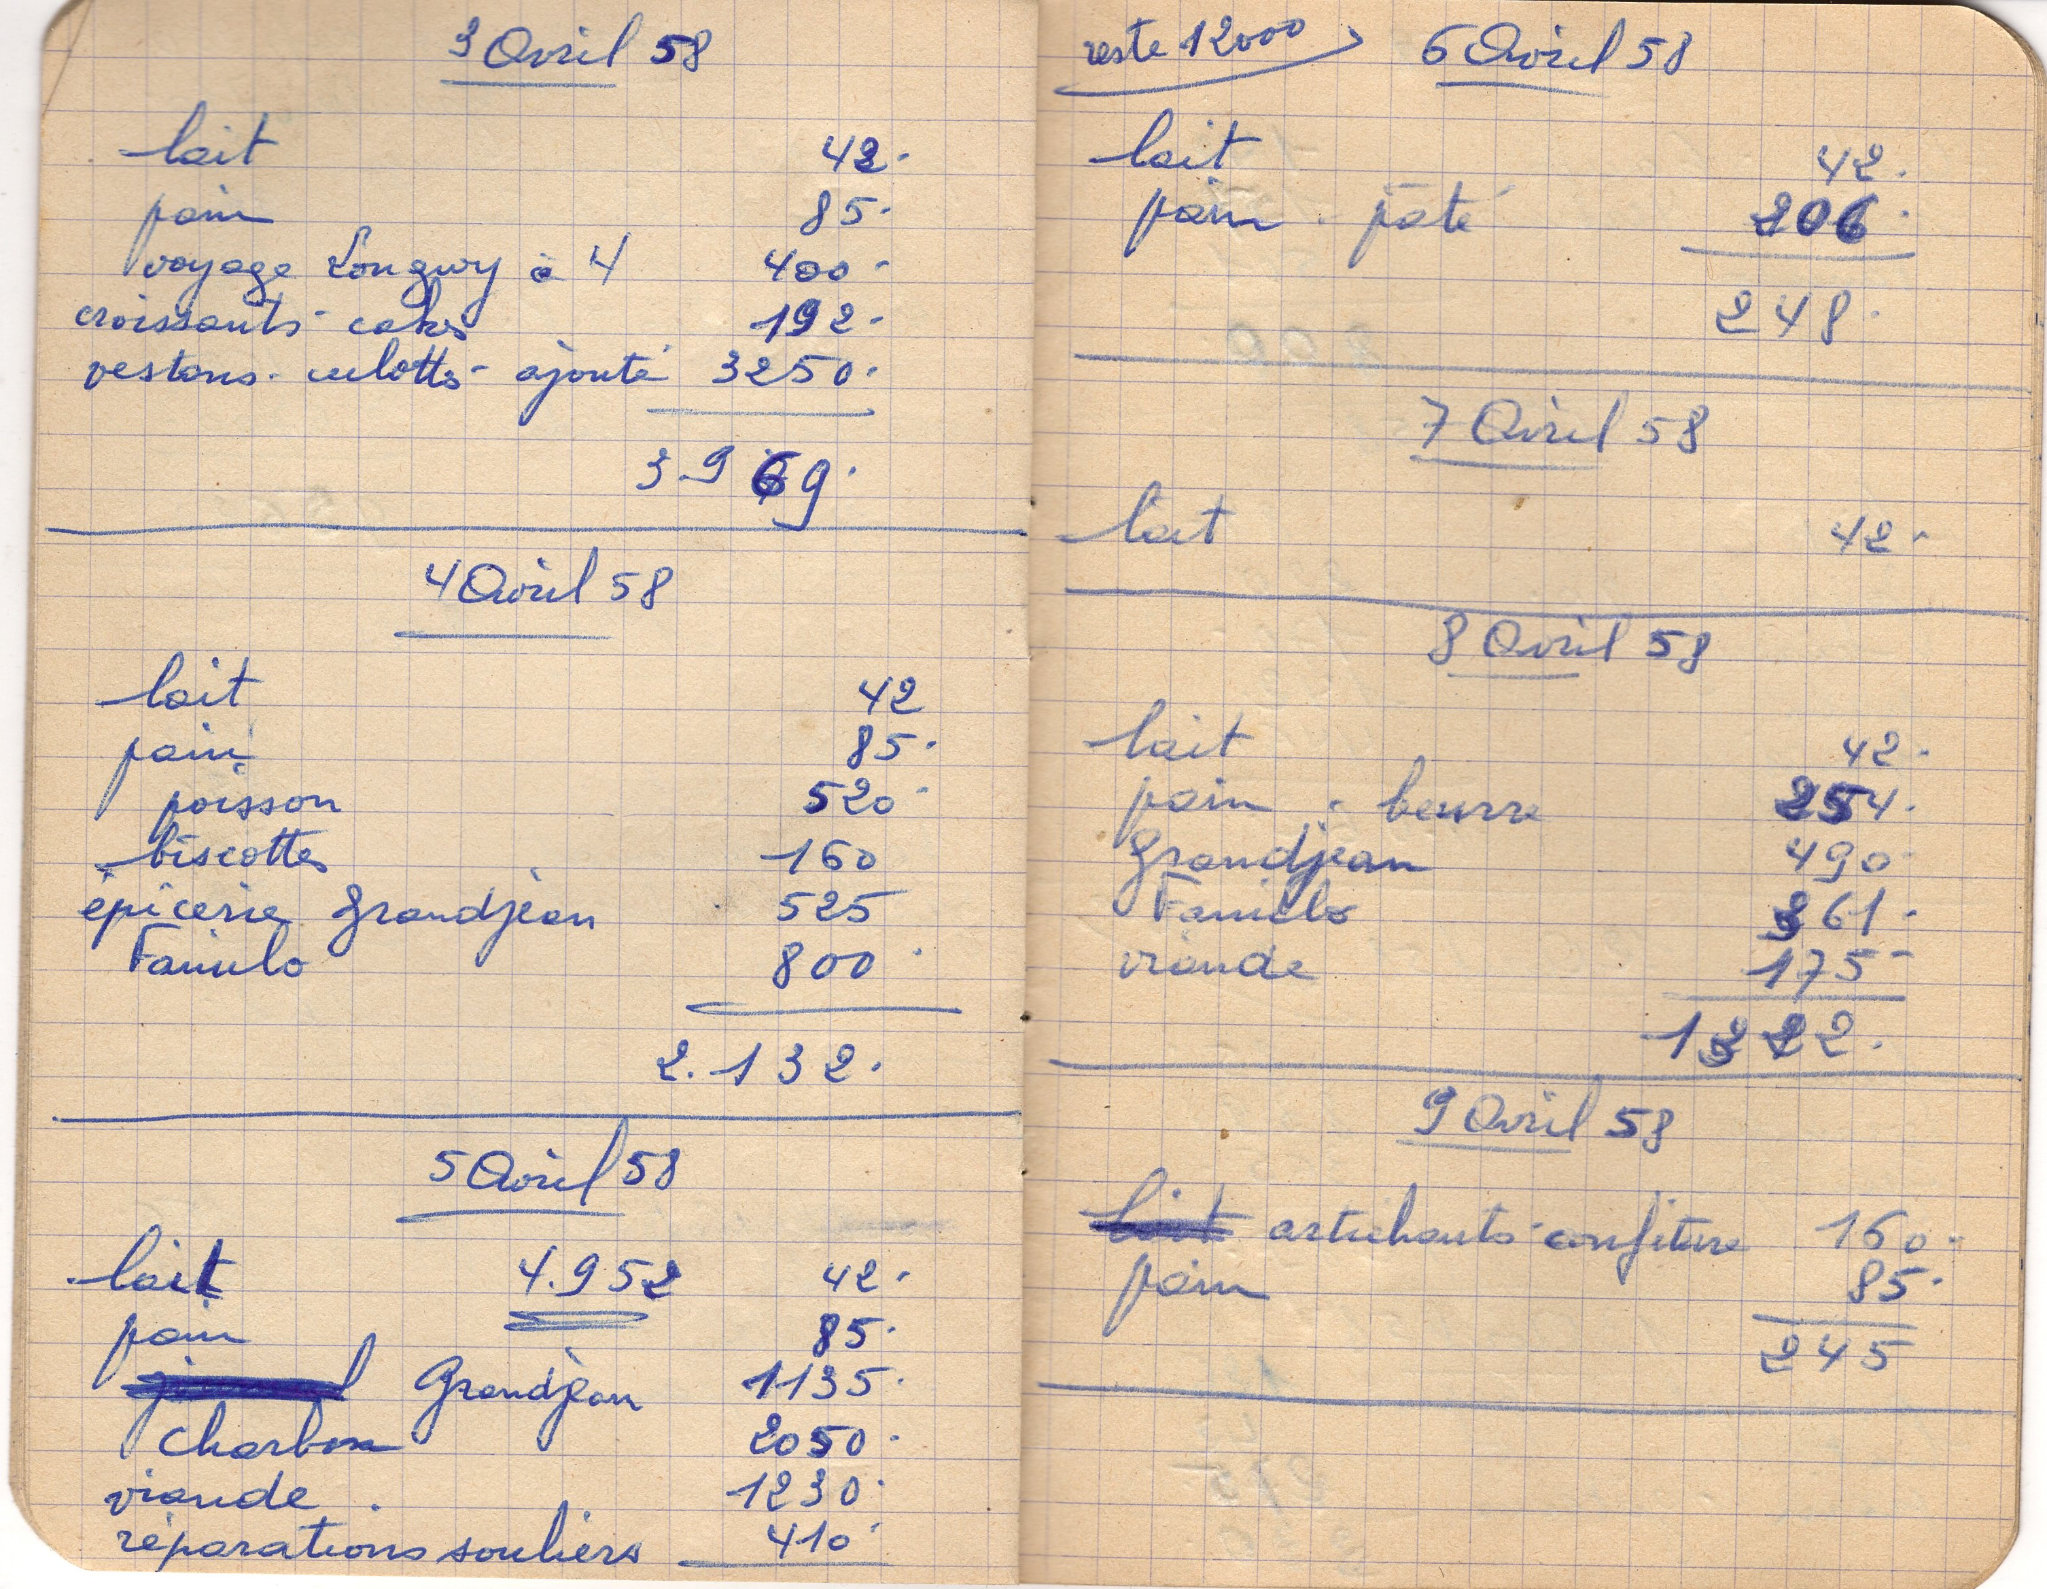 3 Avril 58
lait 42.
pain 85.
voyage Longwy à 4 400.
croissants - cakes 192.
vestons - culottes - ajouté 3250.
3969.
4 Avril 58
lait 42
pain 85.
poisson 520.
biscottes 160
épicerie Grandjean 525
Familo 800.
2.132.
5 Avril 58
lait 4.952 42.
pain 85.
Grandjean 1135.
charbon 2050.
viande. 1230.
réparations souliers 410.
reste 12000 6 Avril 58
lait 42.
pain . paté 206.
248.
7 Avril 58
lait 42.
8 Avril 58
lait 42.
pain . beurre 254.
Grandjean 490.
Familo 361.
viande 175-
1322.
9 Avril 58
lait artichauts - confiture 160.
pain 85.
245